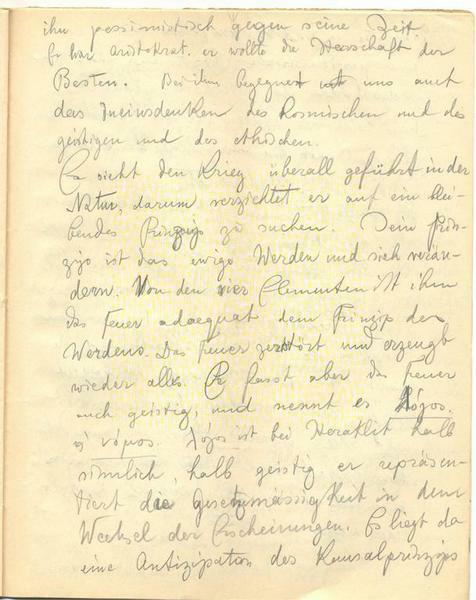 ihn pessimistisch gegen seine Zeit.
Er war Aristokrat. er wollte die Herrschaft der
Besten. Bei ihm begegnet uns auch
das Ineinsdenken des Kosmischen und des
geistigen und des ethischen.
Er sieht den Krieg überall geführt in der
Natur, darum verzichtet er auf ein blei-
bendes Prinzip zu suchen. Sein Prin-
zip ist das ewige Werden und sich verän-
dern. Von den vier Elementen ist ihm
das Feuer adaequat dem Prinzip des
Werdens. Das Feuer zerstört und erzeugt
wieder alles. Er fasst aber das Feuer
auch geistig, und nennt es λόγος.
νόμος. λόγος ist bei Heraklit halb
sinnlich, halb geistig er repräsen-
tiert die Gesetzmässigkeit in dem
Wechsel der Erscheinungen. Es liegt da
eine Antizipation des Kausalprinzips